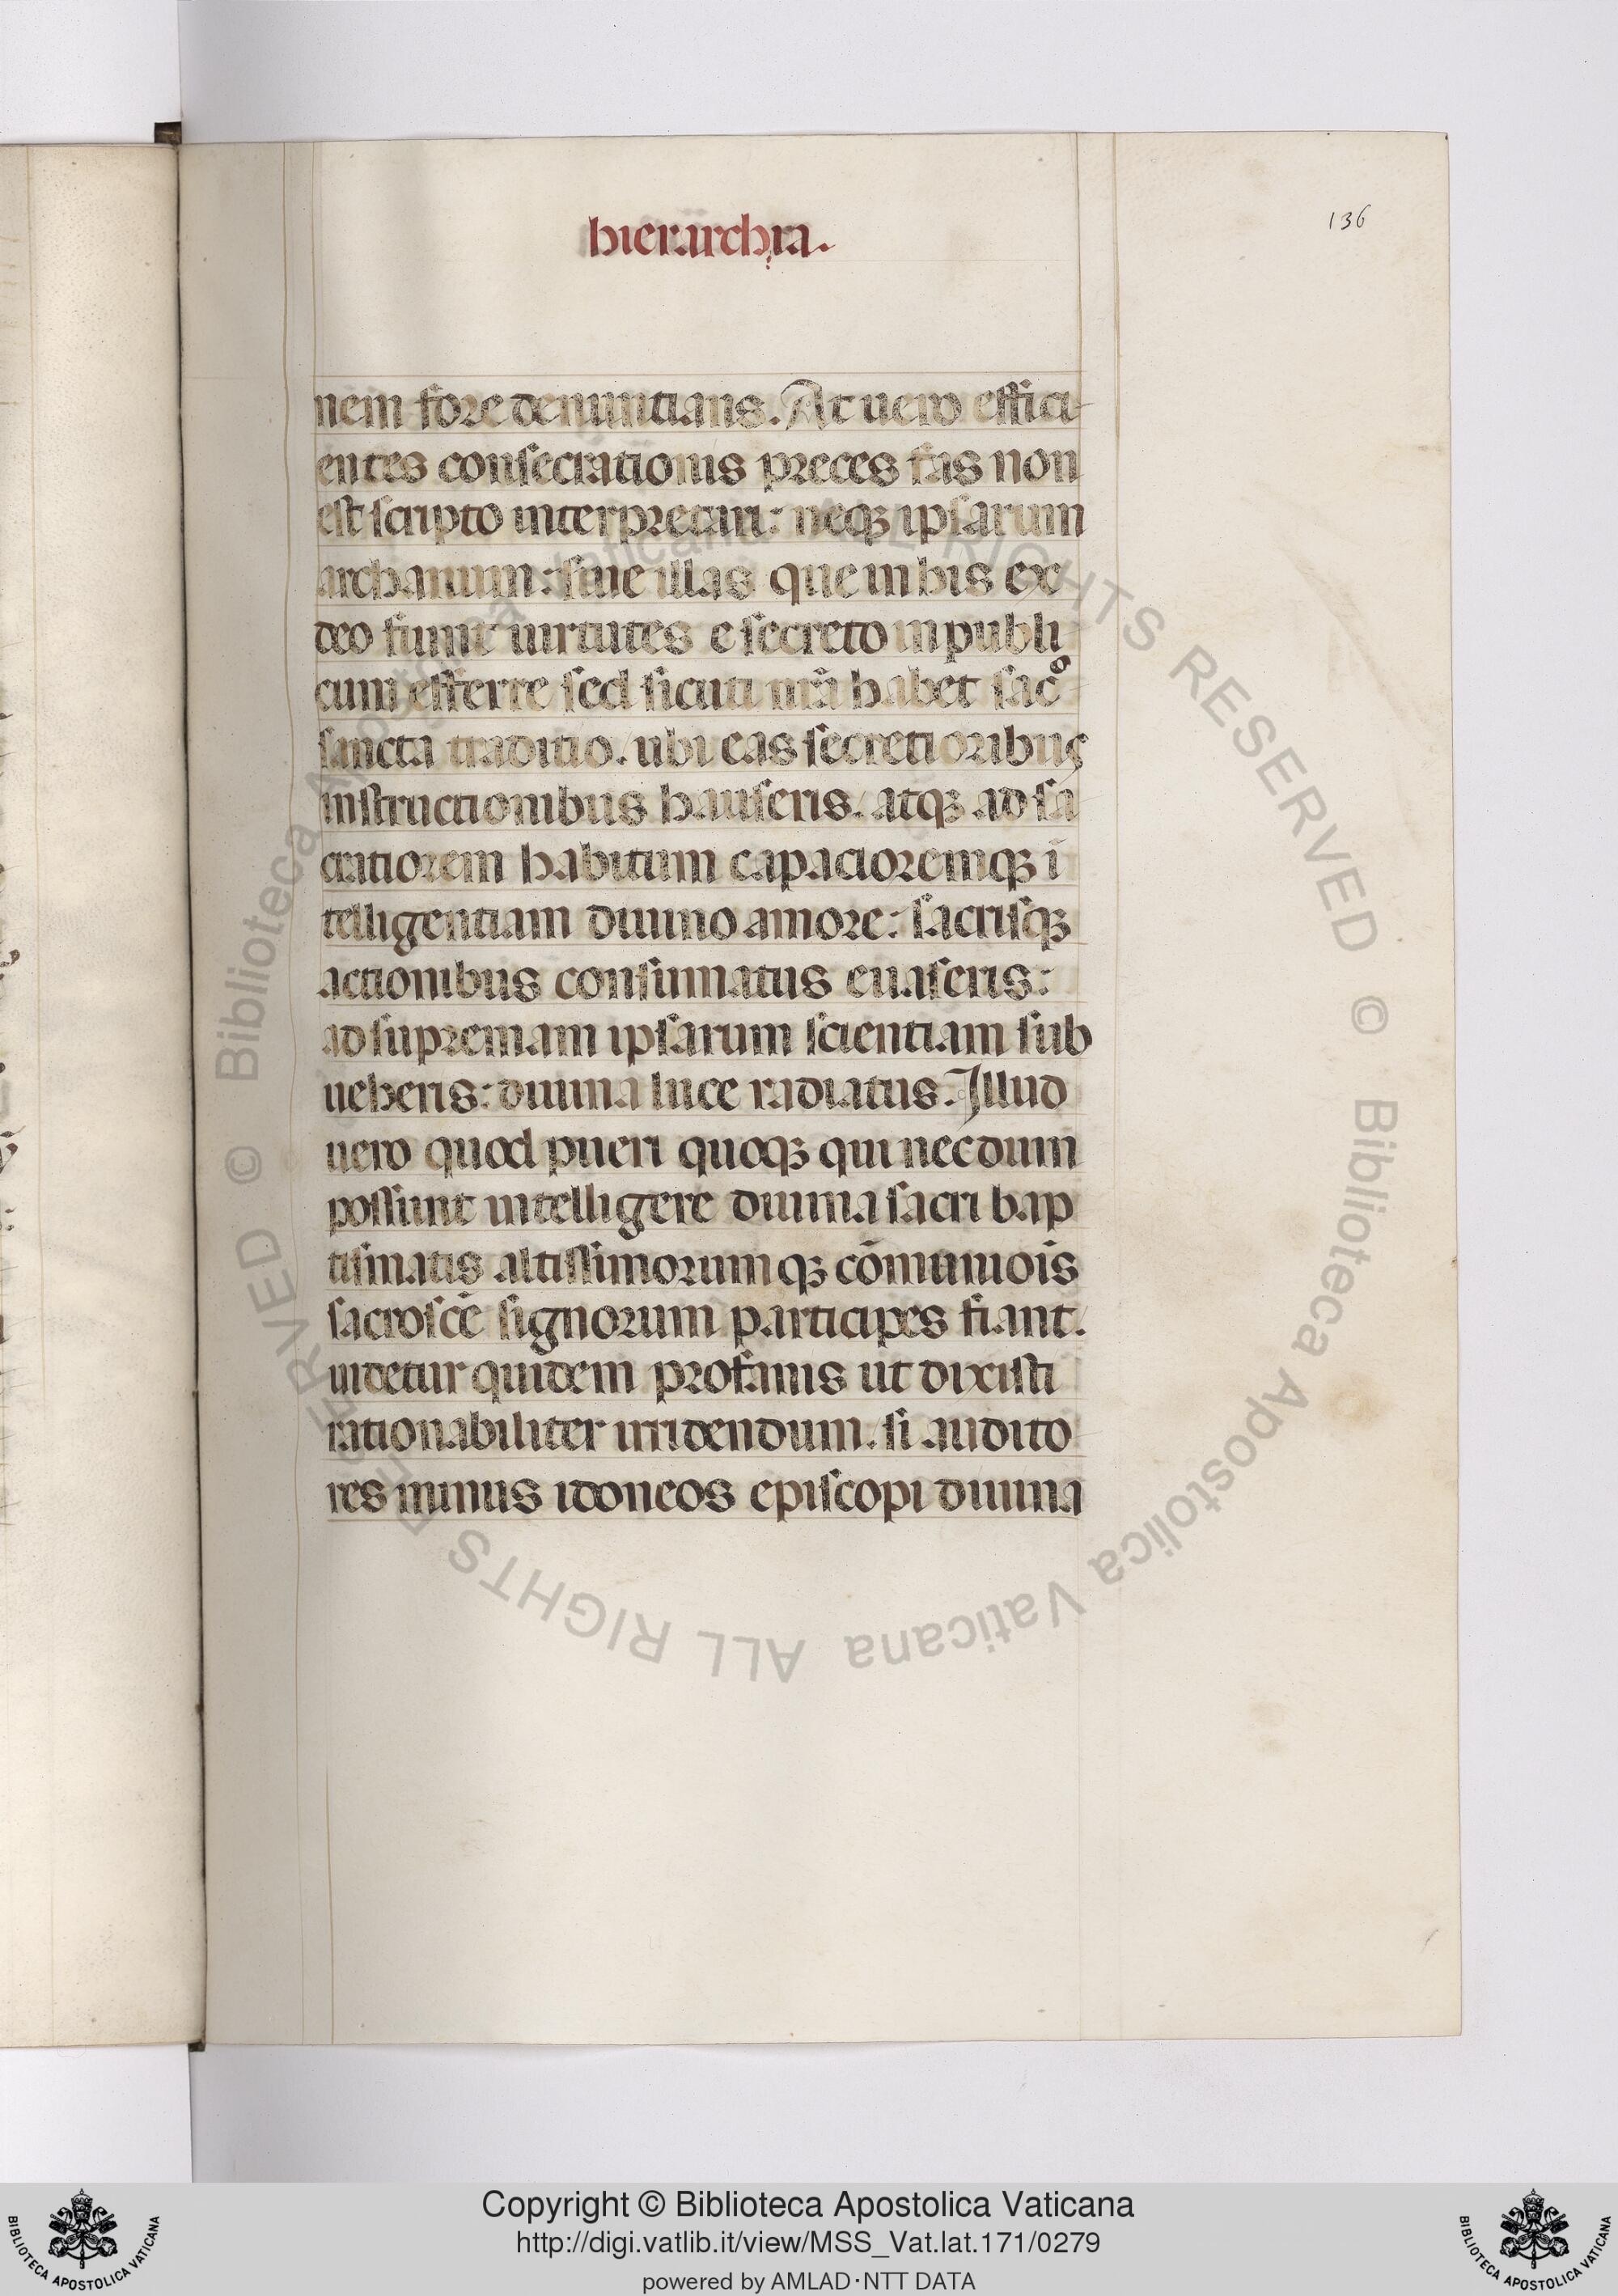 hierarchia.
136
nem fore denuntians. At uero effici-
entes consecrationis preces fas non
est scripto interpretari: neqꝫ ipsarum
archanum: siue illas que in his ex
deo fiunt uirtutes e secreto in publi
cum efferre sed sicuti nr̄a habet sac̊
sancta traditio. ubi eas secretioribus
instructionibus hauseris. atqꝫ ad sa
cratiorem habitum capacioremqꝫ ī
telligentiam diuino amore: sacrisqꝫ
actionibus consumatus euaseris:
ad supremam ipsarum scientiam sub
ueheris: diuina luce radiatus. Illud
uero quod pueri quoqꝫ qui necdum
possunt intelligere diuina sacri bap
tismatis altissimorumqꝫ cōmuniōis
sacrosc̄e signorum participes fiant.
uidetur quidem profanis ut dixisti
rationabiliter irridendum. si audito
res minus idoneos episcopi diuina
© Biblioteca Apostolica Vaticana ALL RIGHTS RESERVED © Biblioteca Apostolica Vaticana ALL RIGHTS RESERVED
Copyright © Biblioteca Apostolica Vaticana
http://digi.vatlib.it/view/MSS_Vat.lat.171/0279
powered by AMLAD·NTT DATA
BIBLIOTECA APOSTOLICA VATICANA
BIBLIOTECA APOSTOLICA VATICANA